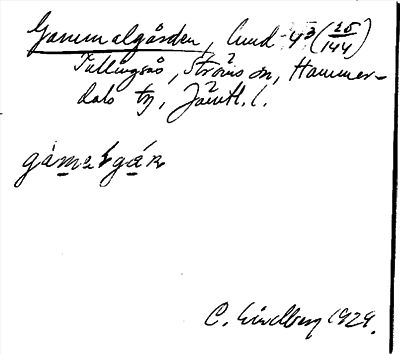 Gammalgården, lund 4³ (25/144)
Tullingsås, Ströms sn, Hammer-
dals tg, Jämtl. l.
C. Lindberg 1929.